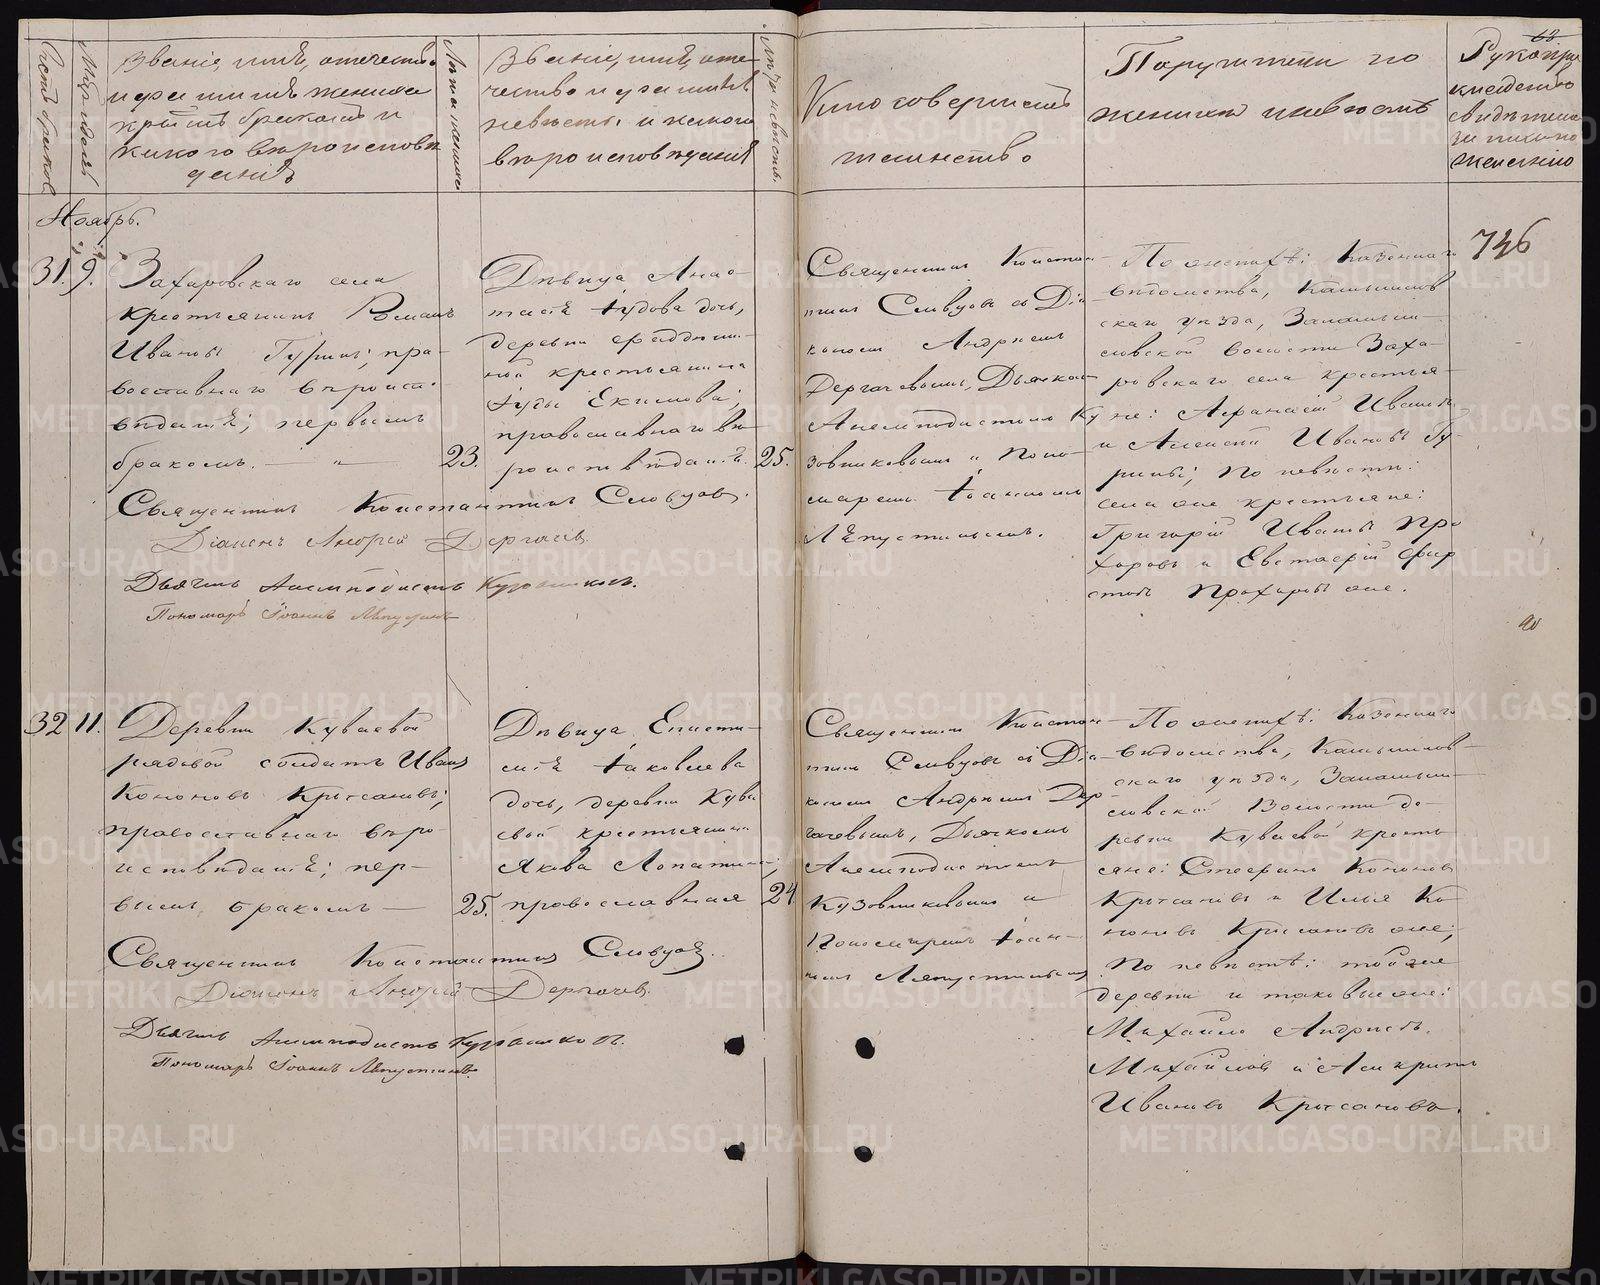 Счетъ браковъ
Мѣс. и день
Званіе, имя, отечество
и фамилія жениха
и
какого вѣроисповѣ
данія
Лѣта жениха
Званіе, имя, оте-
чество и фамилія
невѣсты и какого
вѣроисповѣданія
Лѣта невѣсты.
Кто совершалъ
таинство
Поручители по
женихѣ и невѣстѣ
68
Рукопри
кладство
свидѣтелей
желанію
Ноябрь.
746
31. 9.
Захаровскаго села
крестьянинъ Романъ
Ивановъ Гуринъ; пра-
вославнаго вѣроисп.
вѣданія; первымъ
бракомъ. — " — 23.
Дѣвица Анас-
тасія Іудова дочь,
деревни
крестьянина
Іуды Екимова;
православнаго вѣ-
роисповѣданія. 25.
Священникъ Констан-
тинъ Словцовъ съ Діа-
кономъ Андреемъ
Дергачевымъ, Дьячкомъ
Анемподистомъ Ку-
зовниковымъ и Поно-
маремъ Іоанномъ
Ляпустинымъ.
По женихѣ: Казеннаго
вѣдомства, Камышлов-
скаго уѣзда,
волости Заха-
ровскаго села крестья-
не: Афанасій Ивановъ
и Алексѣй Ивановъ Гу-
рины; по невѣстѣ:
села
крестьяне:
Григорій Ивановъ Про
хоровъ и Евстафій
Прохоровы
Священникъ Константинъ Словцовъ.
Діаконъ Андрей Дергачевъ.
Дьячекъ Анемподистъ Кузовниковъ.
Пономарь Іоаннъ Ляпустинъ
32 11.
Деревни Куваевой
рядовой солдатъ Иванъ
Кононовъ Крысановъ;
православнаго вѣро-
исповѣданія; пер-
вымъ бракомъ — 25.
Дѣвица Еписти-
мія Іаковлева
дочь, деревни Кува
евой крестьянина
Якова Лопатина;
православная 24
Священникъ Констан-
тинъ Словцовъ съ Діа-
кономъ Андреемъ Дер-
гачевымъ, Дьячкомъ
Анемподистомъ
Кузовниковымъ и
Пономаремъ Іоан-
номъ Ляпустинымъ
По женихѣ: Казеннаго
вѣдомства, Камышлов-
скаго уѣзда,
Волости де-
ревни Куваевой кресть
яне: Стефанъ Кононовъ
Крысановъ и Илья Ко
ноновъ Крысановъ
По невѣстѣ: той же
деревни и таковые же:
Михайло Андреевъ
Михайловъ и
Ивановъ Крысановъ.
Священникъ Константинъ Словцовъ.
Діаконъ Андрей Дергачев.
Дьячекъ Анемподистъ Кузовниковъ.
Пономарь Іоаннъ Ляпустинъ.
METRIKI.GASO-URAL.RU